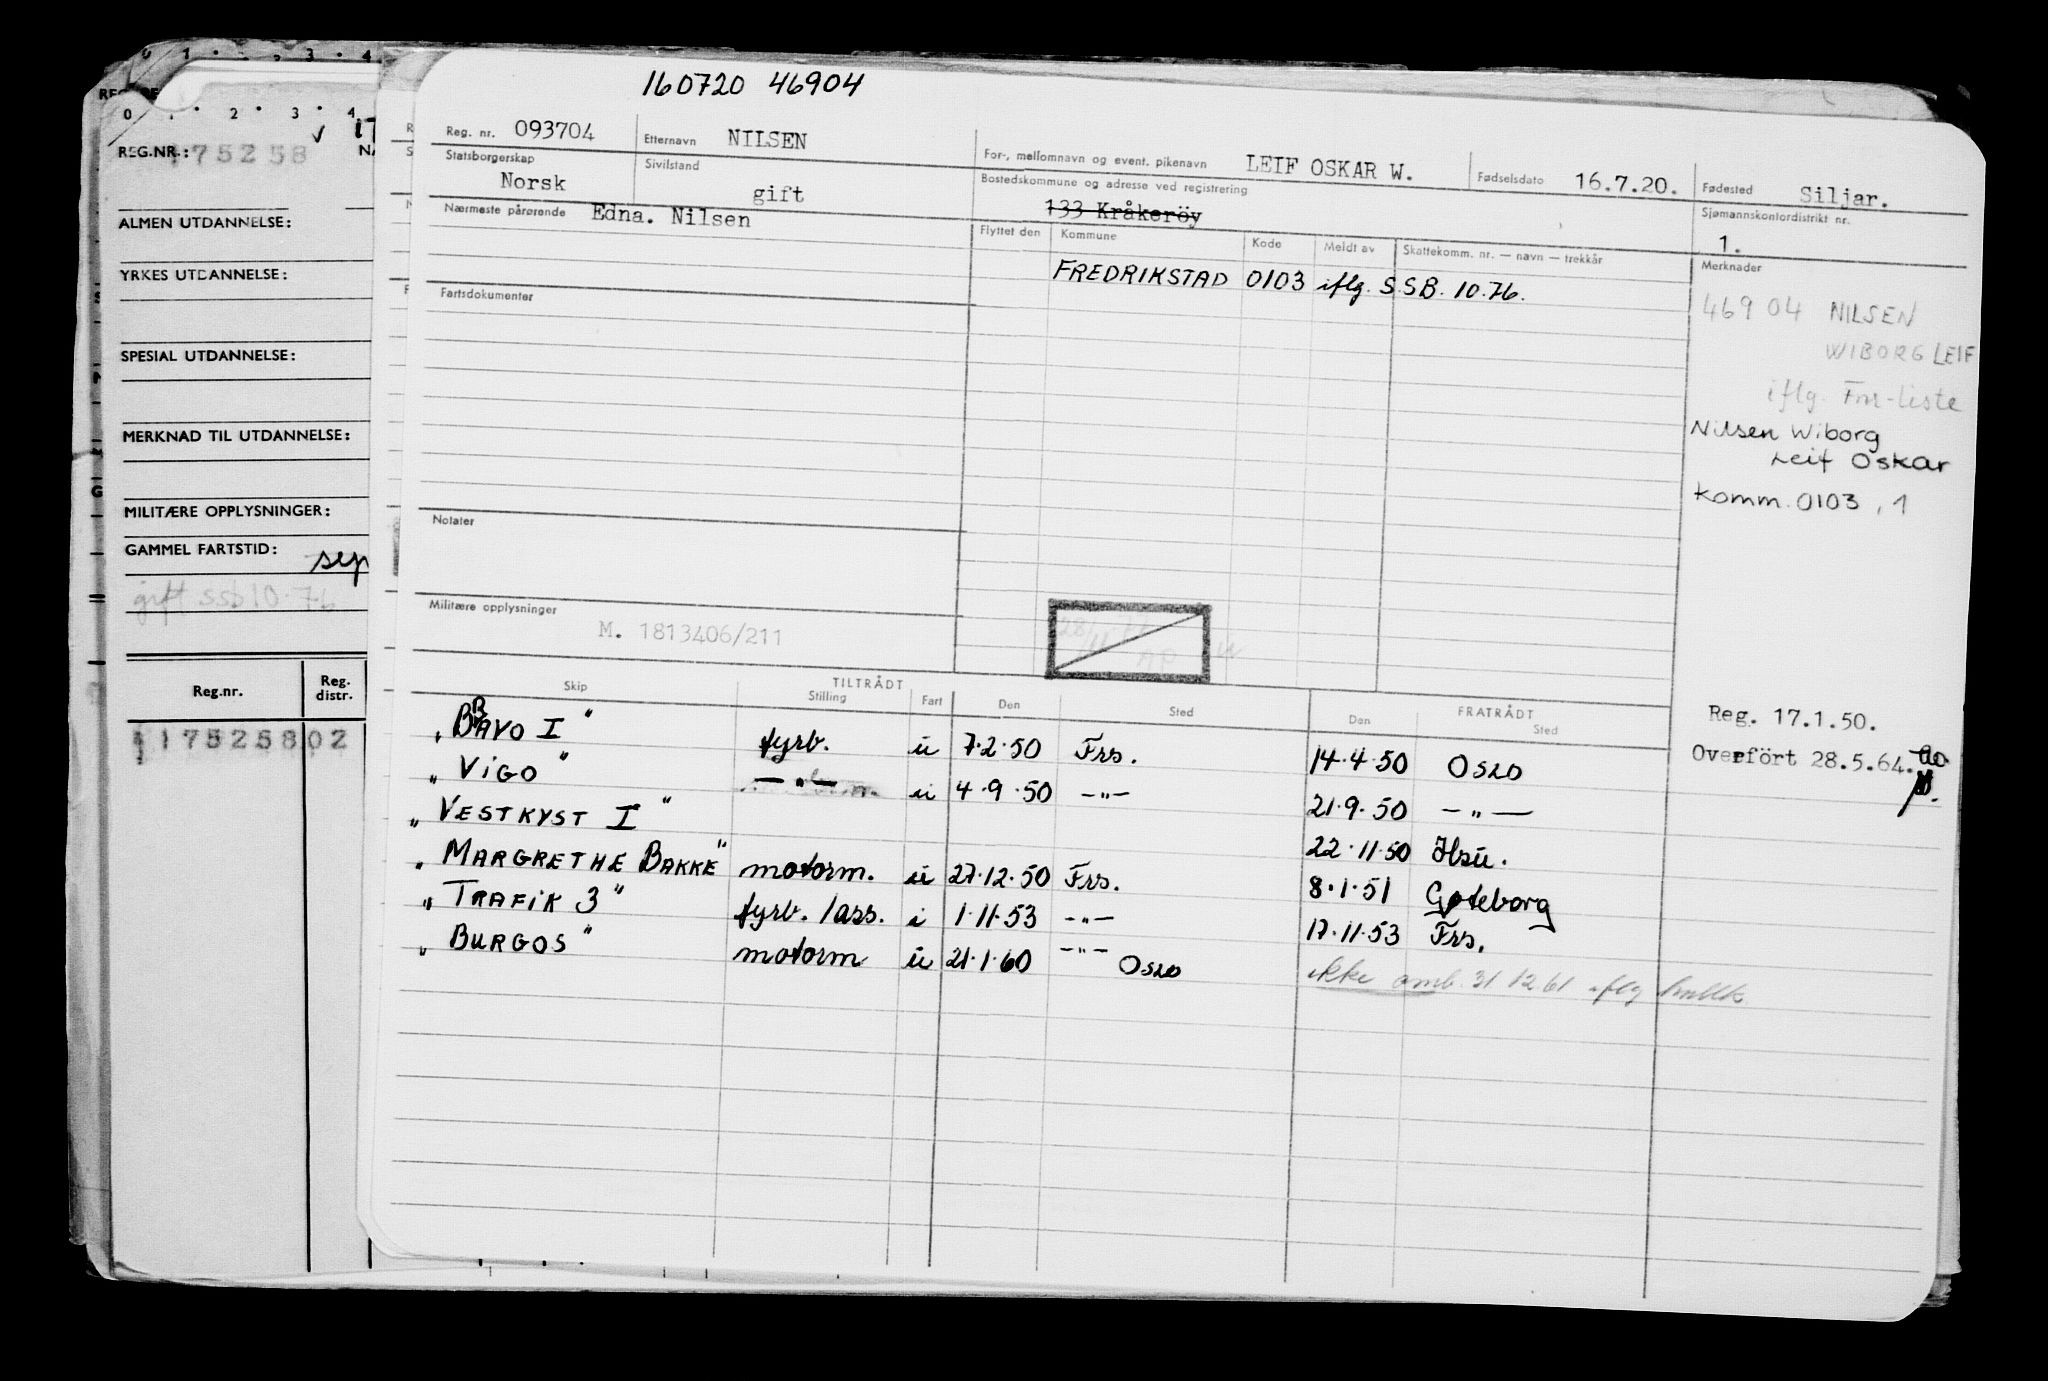 160720 46904
Reg. nr. 093704 Etternavn NILSEN For-, mellomnavn og event. pikenavn LEIF OSKAR W. Fødselsdato 16.7.20. Fødested Siljar.
Statsborgerskap Norsk Sivilstand gift Bostedskommune og adresse ved registrering 133 Kråkeröy Sjømannskontordistrikt nr. 1.
Nærmeste pårørende Edna. Nilsen
Flyttet den Kommune Kode Meldt av Skattekomm. nr. — navn — trekkår Merknader
FREDRIKSTAD 0103 iflg. SSB. 10.76.
46904 NILSEN
WIBORG LEIF
iflg. Fnr-liste
Nilsen Wiborg
Leif Oskar
Komm. 0103, 1
Fartsdokumenter
Notater
Militære opplysninger
M. 1813406/211
TILTRÅDT FRATRÅDT
Skip Stilling Fart Den Sted Den Sted
"BRAVO I" fyrb. u 7.2.50 Frs. 14.4.50 Oslo
"VIGO" — " — u 4.9.50 — " — 21.9.50 — " —
"VESTKYST I" 22.11.50
"MARGRETHE BAKKE" motorm. u 27.12.50 Frs. 8.1.51 Gøteborg
"TRAFIK 3" fyrb./ass. i 1.11.53 — " — 17.11.53 Frs.
"BURGOS" motorm u 21.1.60 — " — Oslo ikke omb. 31 12 61 iflg
Reg. 17.1.50.
Overfört 28.5.64.
0 1 2 3 4
REG.NR.: 175258
ALMEN UTDANNELSE:
YRKES UTDANNELSE:
SPESIAL UTDANNELSE:
MERKNAD TIL UTDANNELSE:
MILITÆRE OPPLYSNINGER:
GAMMEL FARTSTID:
gift ssb 10.76
Reg.nr. Reg. distr.
175258 02